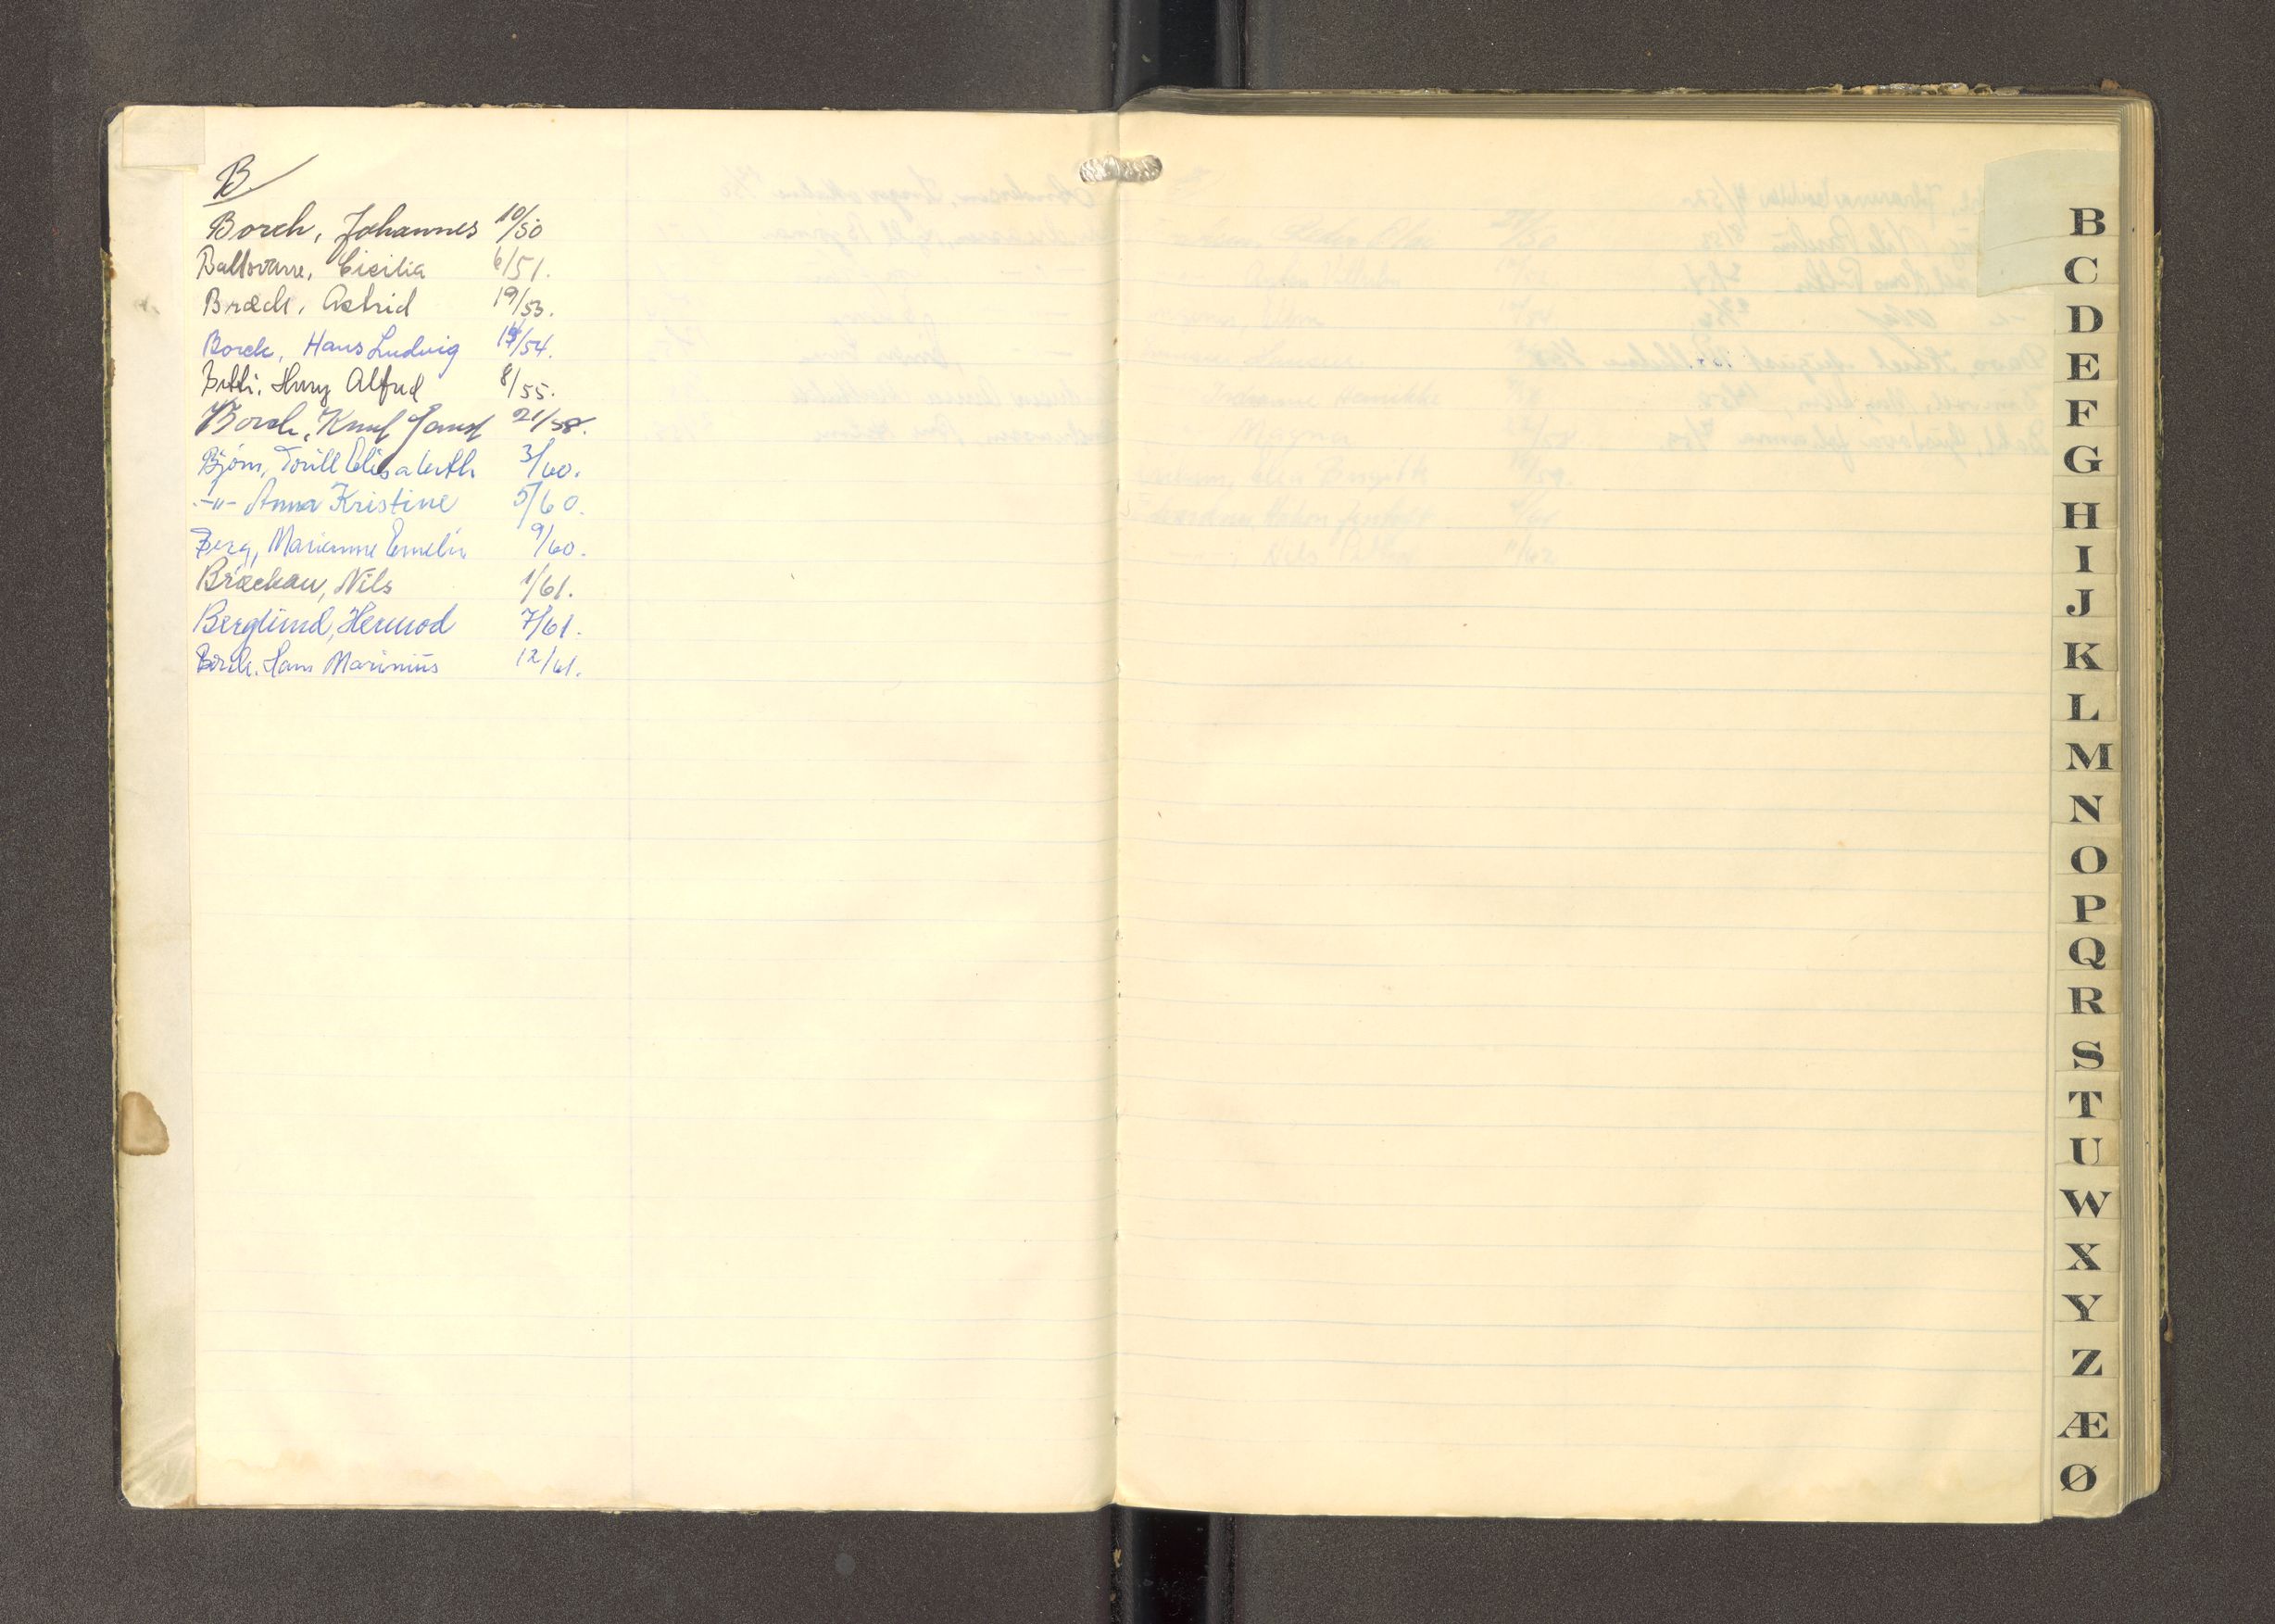 B.
Borch, Johannes 10/50
Ballovarre, Cicilia 6/51.
Bræck, Astrid 19/53.
Borch, Hans Ludvig 14/54.
Alfred 8/55.
Borch, Knut 21/58.
Bjørn, Torill Elisabeth 3/60.
-"- Anna Kristine 5/60.
Berg, Marianne Emelie 9/60.
Brækkan, Nils 1/61.
Berglund, Hermod 7/61.
Hans Marinius 12/61.
B
C
D
E
F
G
H
I
J
K
L
M
N
O
P
Q
R
S
T
U
W
X
Y
Z
Æ
Ø